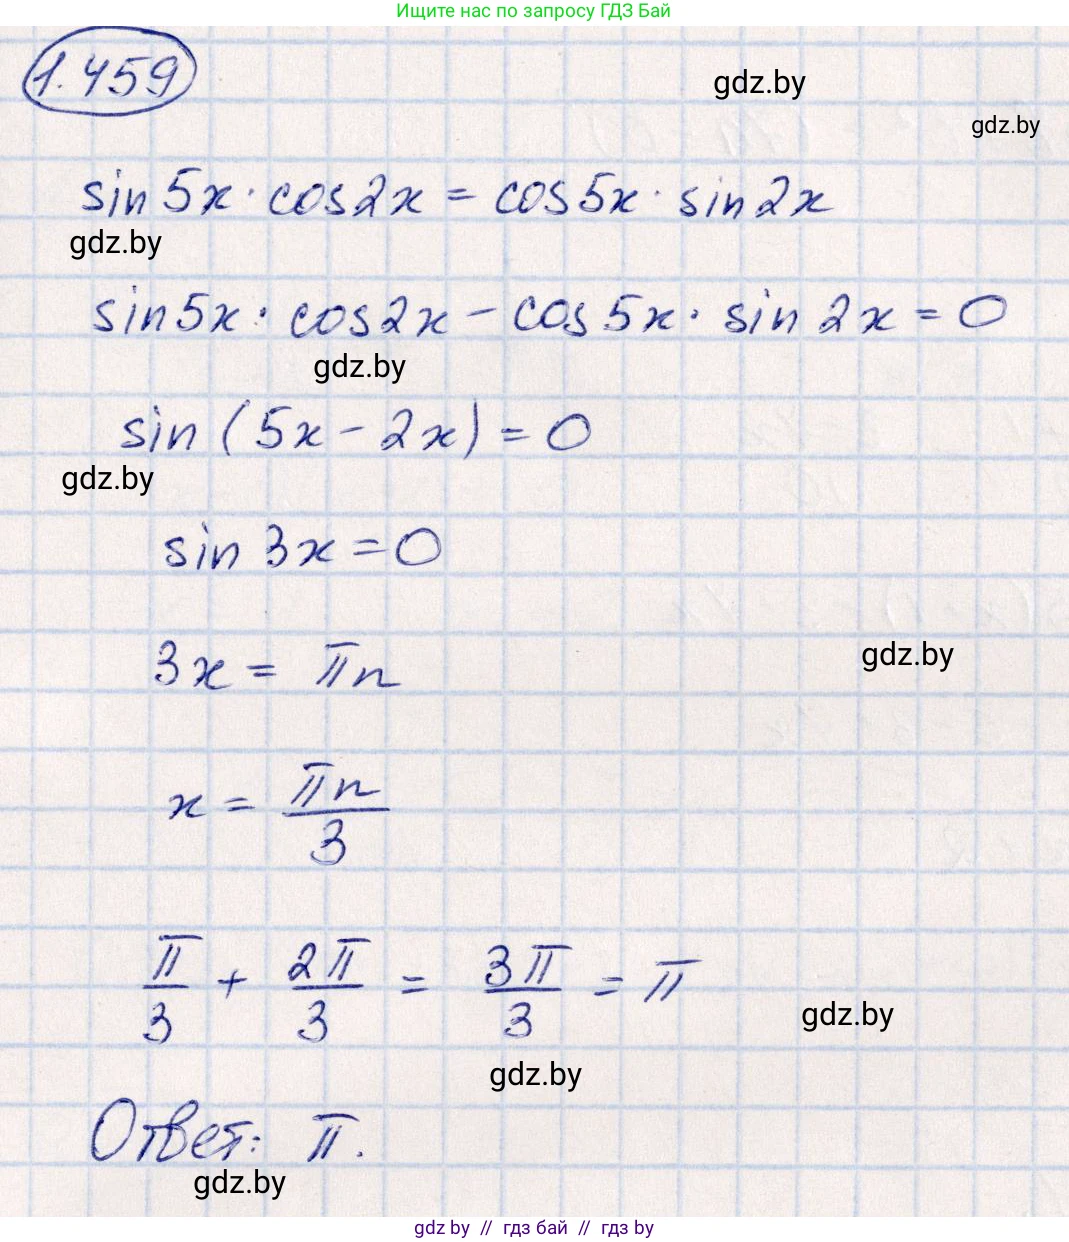 Ищите нас по запросу ГДЗ Бай
1.459
gdz.by
gdz.by
sin 5x · cos 2x = cos 5x · sin 2x
gdz.by
sin 5x · cos 2x − cos 5x · sin 2x = 0
gdz.by
sin (5x − 2x) = 0
gdz.by
sin 3x = 0
3x = πn
gdz.by
x = πn/3
π/3 + 2π/3 = 3π/3 = π
gdz.by
gdz.by
Ответ: π.
gdz.by
gdz by // гдз бай // гдз by